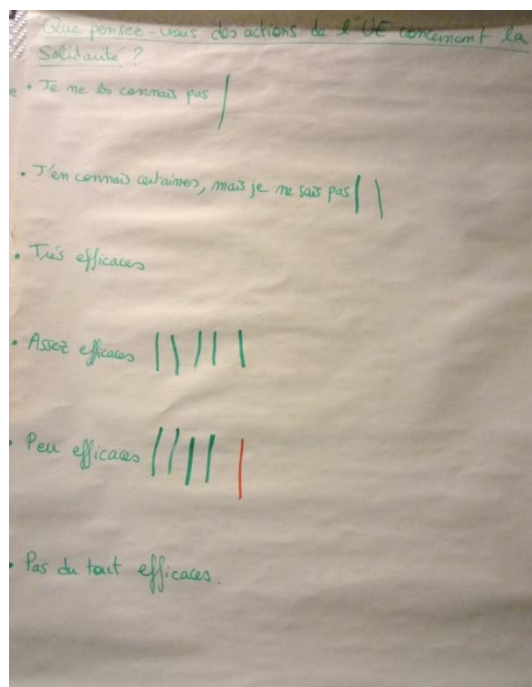 Que pensez-vous des actions de l'UE concernant la
Solidarité ?
• Je ne les connais pas |
• J'en connais certaines, mais je ne sais pas | |
• Très efficaces
• Assez efficaces | | | | |
• Peu efficaces | | | | |
• Pas du tout efficaces.